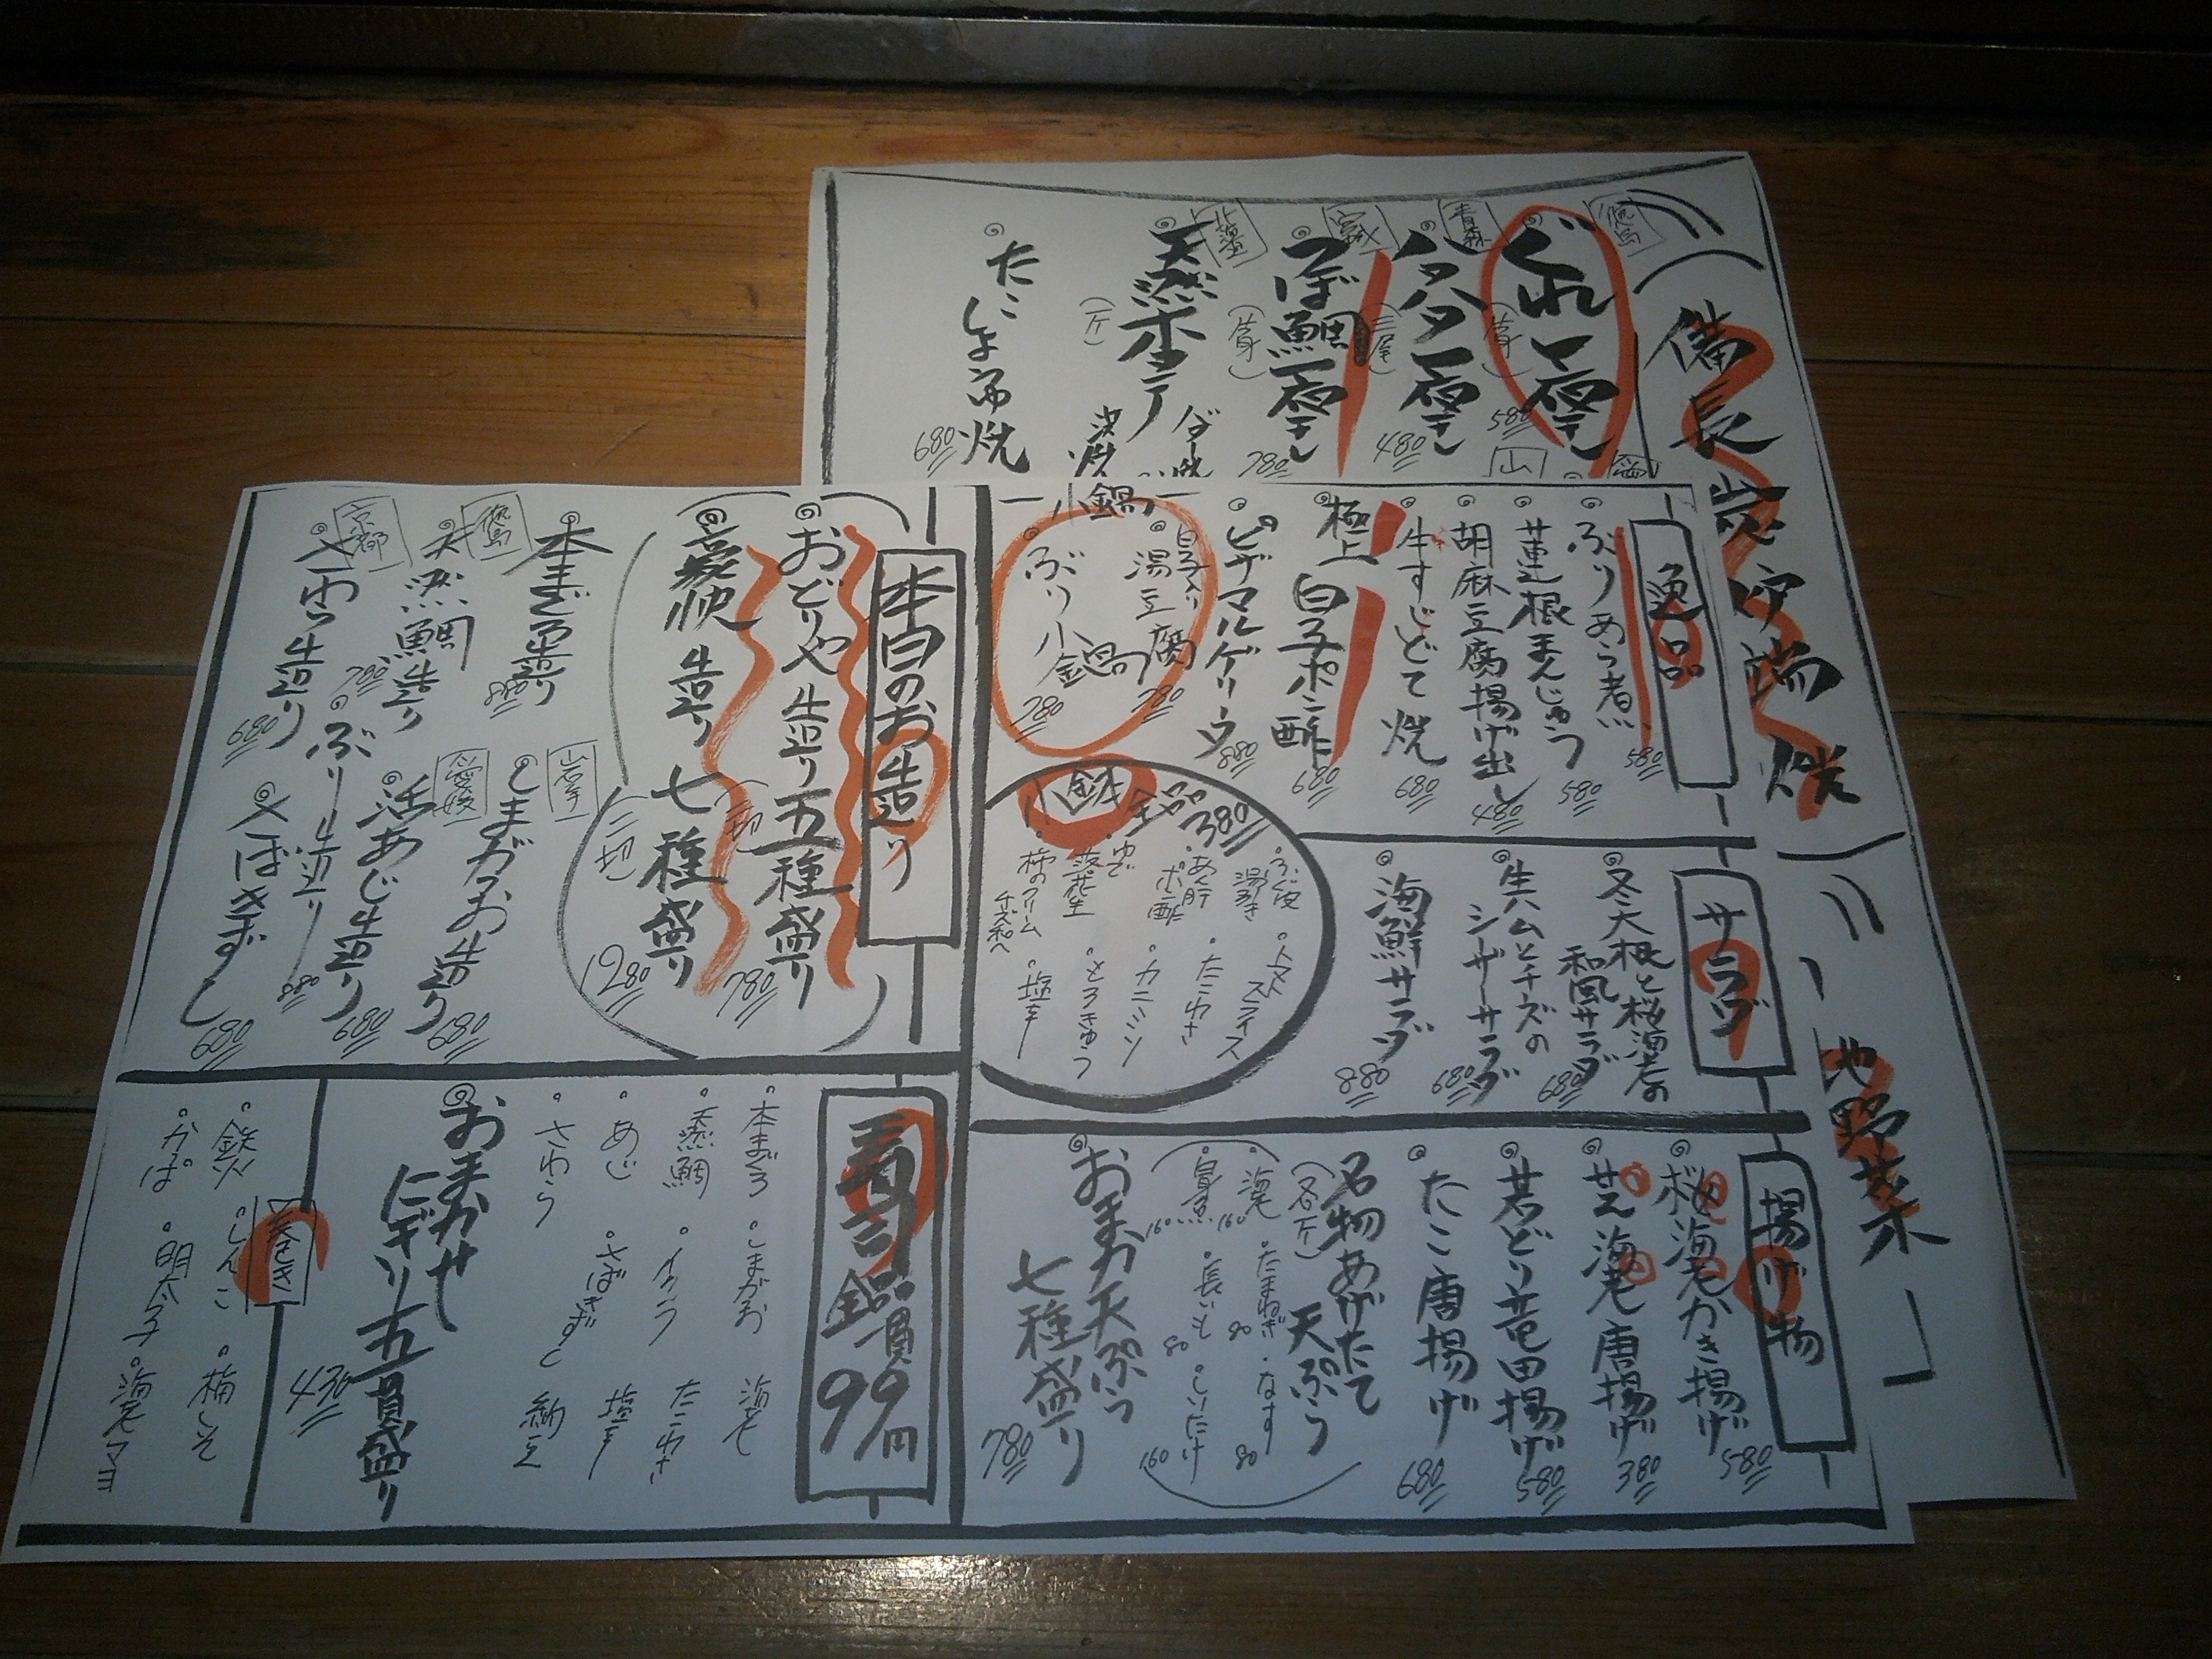 備長炭炉端焼
徳島
ぐれ一夜干し
580
青森
ハタハタ一夜干し
(三尾)
480
宮城
つぼ鯛一夜干し
780
北海道
天然ホタテ
バター焼
たこしょうが焼
680
地野菜
逸品
ぶりあら煮
580
蓮根まんじゅう
580
胡麻豆腐揚げ出し
480
牛すじどて焼
680
極上白子ポン酢
680
ピザマルゲリータ
880
小鍋
白子入り湯豆腐
780
ぶり小鍋
780
サラダ
冬大根と桜海老の
和風サラダ
680
生ハムとチーズの
シーザーサラダ
680
海鮮サラダ
880
小鉢
全品380
・ふぐ皮湯引き
・あん肝ポン酢
・ゆで落花生
・柿のクリームチーズ和へ
・トマトスライス
・たこわさ
・カニミソ
・とろきゅう
・塩辛
揚げ物
桜海老かき揚げ
580
芝海老唐揚げ
380
若どり竜田揚げ
580
たこ唐揚げ
680
名物あげたて
天ぷら
・海老
160
・たまねぎ
80
・なす
80
・長いも
80
・しいたけ
160
おまかせ天ぷら
七種盛り
780
本日のお造り
おどりや造り五種盛り
780
豪快造り七種盛り
(二切)
1280
本まぐろ造り
880
徳島
天然鯛造り
780
京都
さわら造り
680
岩手
しまがつお造り
680
愛媛
活あじ造り
680
ぶり造り
880
さばきずし
680
寿司
全品一貫99円
・本まぐろ
・しまがつお
・海老
・天然鯛
・イクラ
・たこわさ
・あじ
・さばきずし
・塩辛
・さわら
・納豆
おまかせ
にぎり五貫盛り
430
巻き
・鉄火
・しんこ
・梅しそ
・かっぱ
・明太子
・海老マヨ